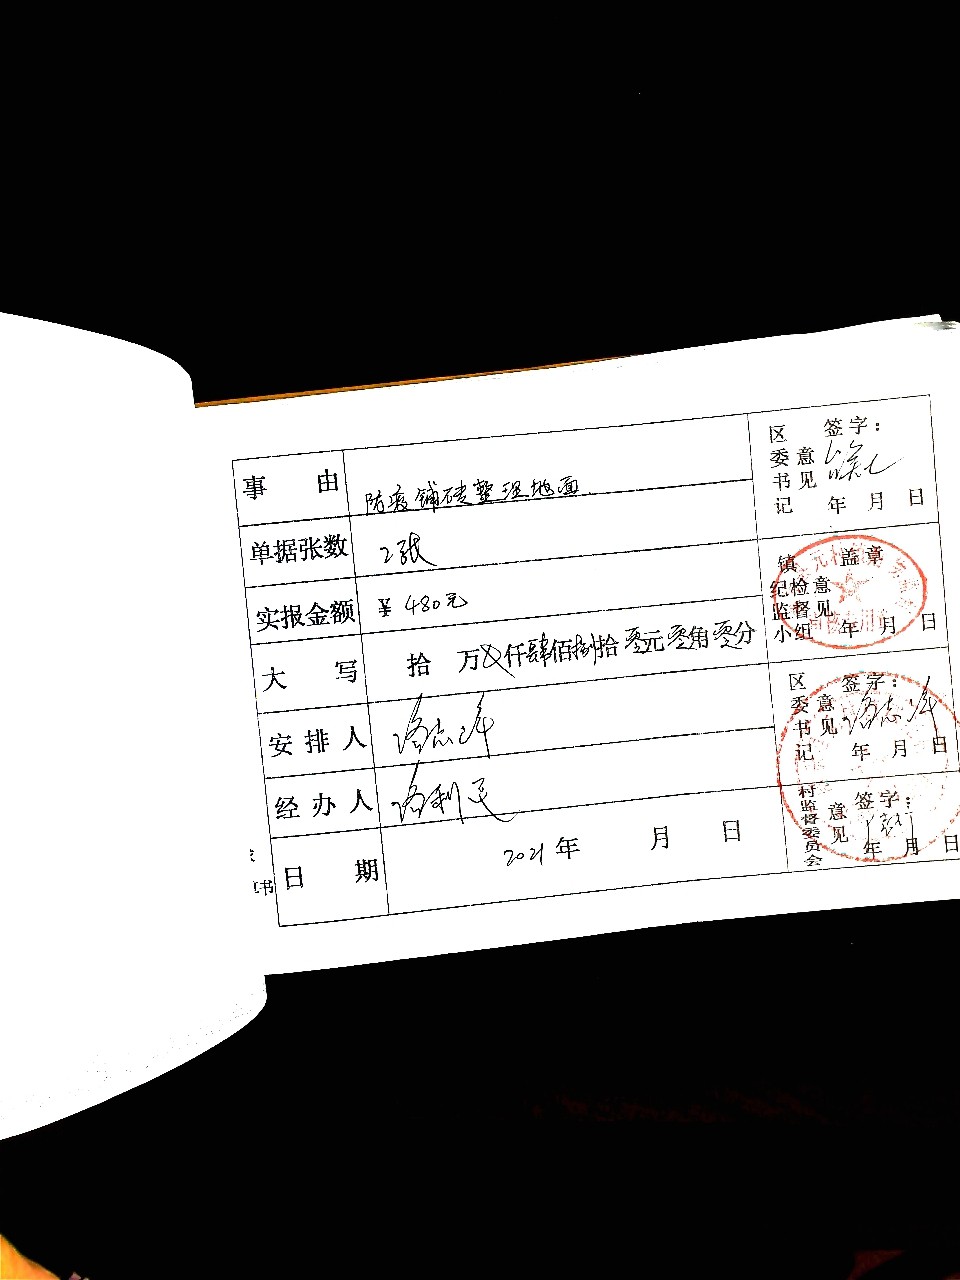 事 由 防疫铺砖整理地面
单据张数 2张
实报金额 ¥ 480元
大 写 拾 万 仟肆佰捌拾零元零角零分
安排人
经办人
日 期 2021年 月 日
区委书记 意见 签字：
年 月 日
镇纪检监督小组 意见 盖章
年 月 日
区委书记 意见 签字：
年 月 日
村监督委员会 意见 签字：
年 月 日
书